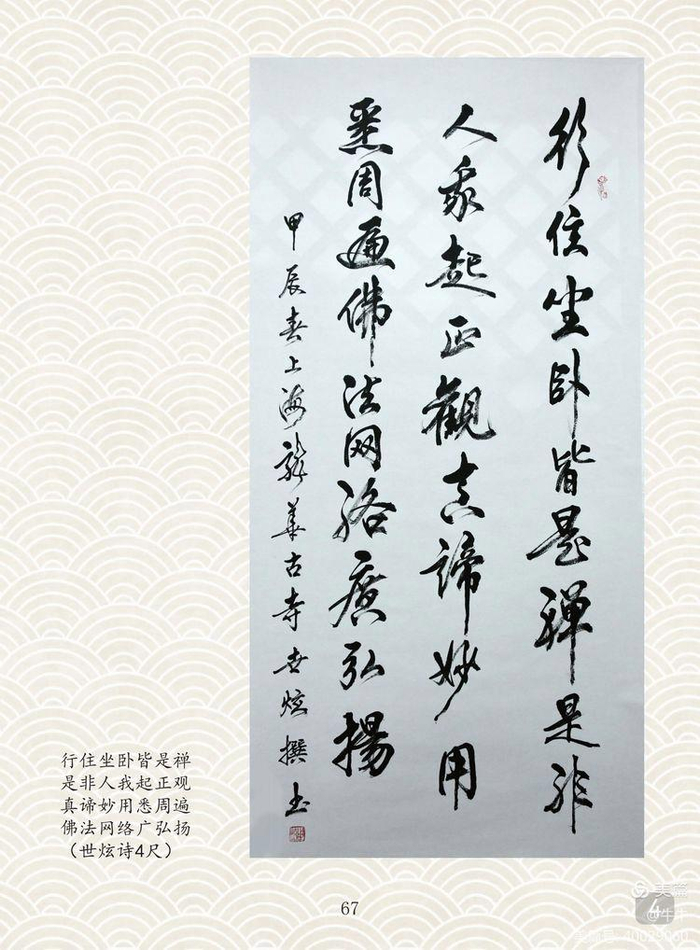 行住坐卧皆是禅是非
人我起正觀真諦妙用
悉周遍佛法网络廣弘揚
甲辰春上海龍華古寺世炫撰书
行住坐卧皆是禅
是非人我起正观
真谛妙用悉周遍
佛法网络广弘扬
（世炫诗4尺）
67
美篇
@牛牛